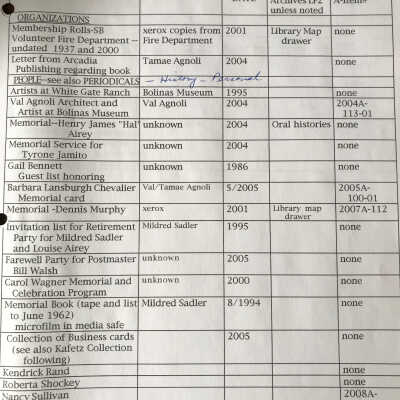 Archives LF2 A-items-
unless noted
ORGANIZATIONS
Membership Rolls-SB xerox copies from 2001 Library Map none
Volunteer Fire Department -- Fire Department drawer
undated 1937 and 2000
Letter from Arcadia Tamae Agnoli 2004 none
Publishing regarding book
PEOPLE- see also PERIODICALS - History - Personal
Artists at White Gate Ranch Bolinas Museum 1995 none
Val Agnoli Architect and Val Agnoli 2004 2004A-
Artist at Bolinas Museum 113-01
Memorial--Henry James "Hal" unknown 2004 Oral histories none
Airey
Memorial Service for unknown 2004 none
Tyrone Jamito
Gail Bennett unknown 1986 none
Guest list honoring
Barbara Lansburgh Chevalier Val/Tamae Agnoli 5/2005 2005A-
Memorial card 100-01
Memorial -Dennis Murphy xerox 2001 Library map 2007A-112
drawer
Invitation list for Retirement Mildred Sadler 1995 none
Party for Mildred Sadler
and Louise Airey
Farewell Party for Postmaster unknown 2005 none
Bill Walsh
Carol Wagner Memorial and unknown 2000 none
Celebration Program
Memorial Book (tape and list Mildred Sadler 8/1994 none
to June 1962)
microfilm in media safe
Collection of Business cards 2005 none
(see also Kafetz Collection
following)
Kendrick Rand none
Roberta Shockey none
Nancy Sullivan 2008A-